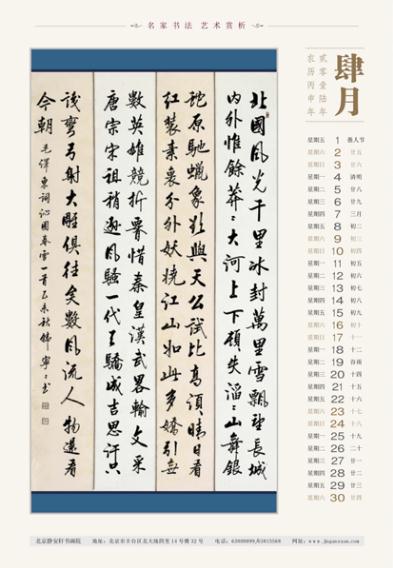 名家书法 艺术赏析
肆月
貳零壹陆年
农历丙申年
北國風光千里冰封萬里雪飄望長城
内外惟餘莽〻大河上下頓失滔〻山舞銀
蛇原馳蠟象欲與天公試比高須晴日看
紅裝素裹分外妖嬈江山如此多嬌引無
數英雄競折腰惜秦皇漢武畧輸文采
唐宗宋祖稍遜風騷一代天驕成吉思汗只
識彎弓射大雕俱往矣數風流人物還看
今朝 毛澤東詞沁園春雪一首乙未秋 書
星期五 1 愚人节
星期六 2 廿五
星期日 3 廿六
星期一 4 清明
星期二 5 廿八
星期三 6 廿九
星期四 7 三月
星期五 8 初二
星期六 9 初三
星期日 10 初四
星期一 11 初五
星期二 12 初六
星期三 13 初七
星期四 14 初八
星期五 15 初九
星期六 16 初十
星期日 17 十一
星期一 18 十二
星期二 19 谷雨
星期三 20 十四
星期四 21 十五
星期五 22 十六
星期六 23 十七
星期日 24 十八
星期一 25 十九
星期二 26 二十
星期三 27 廿一
星期四 28 廿二
星期五 29 廿三
星期六 30 廿四
北京静安轩书画院 地址：北京市丰台区北大地四里14号楼32号 电话：63808899/63815568 网址：www.jinganxuan.com